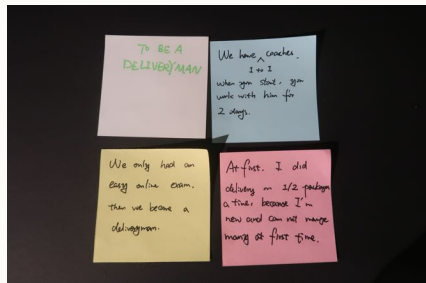 TO BE A
DELIVERYMAN
We have coaches.
1 to 1
when you start, you
work with him for
2 days.
We only had an
easy online exam.
Then we became a
deliveryman.
At first. I did
delivery on 1/2 package
a time, because I'm
new and can not mange
many at first time.